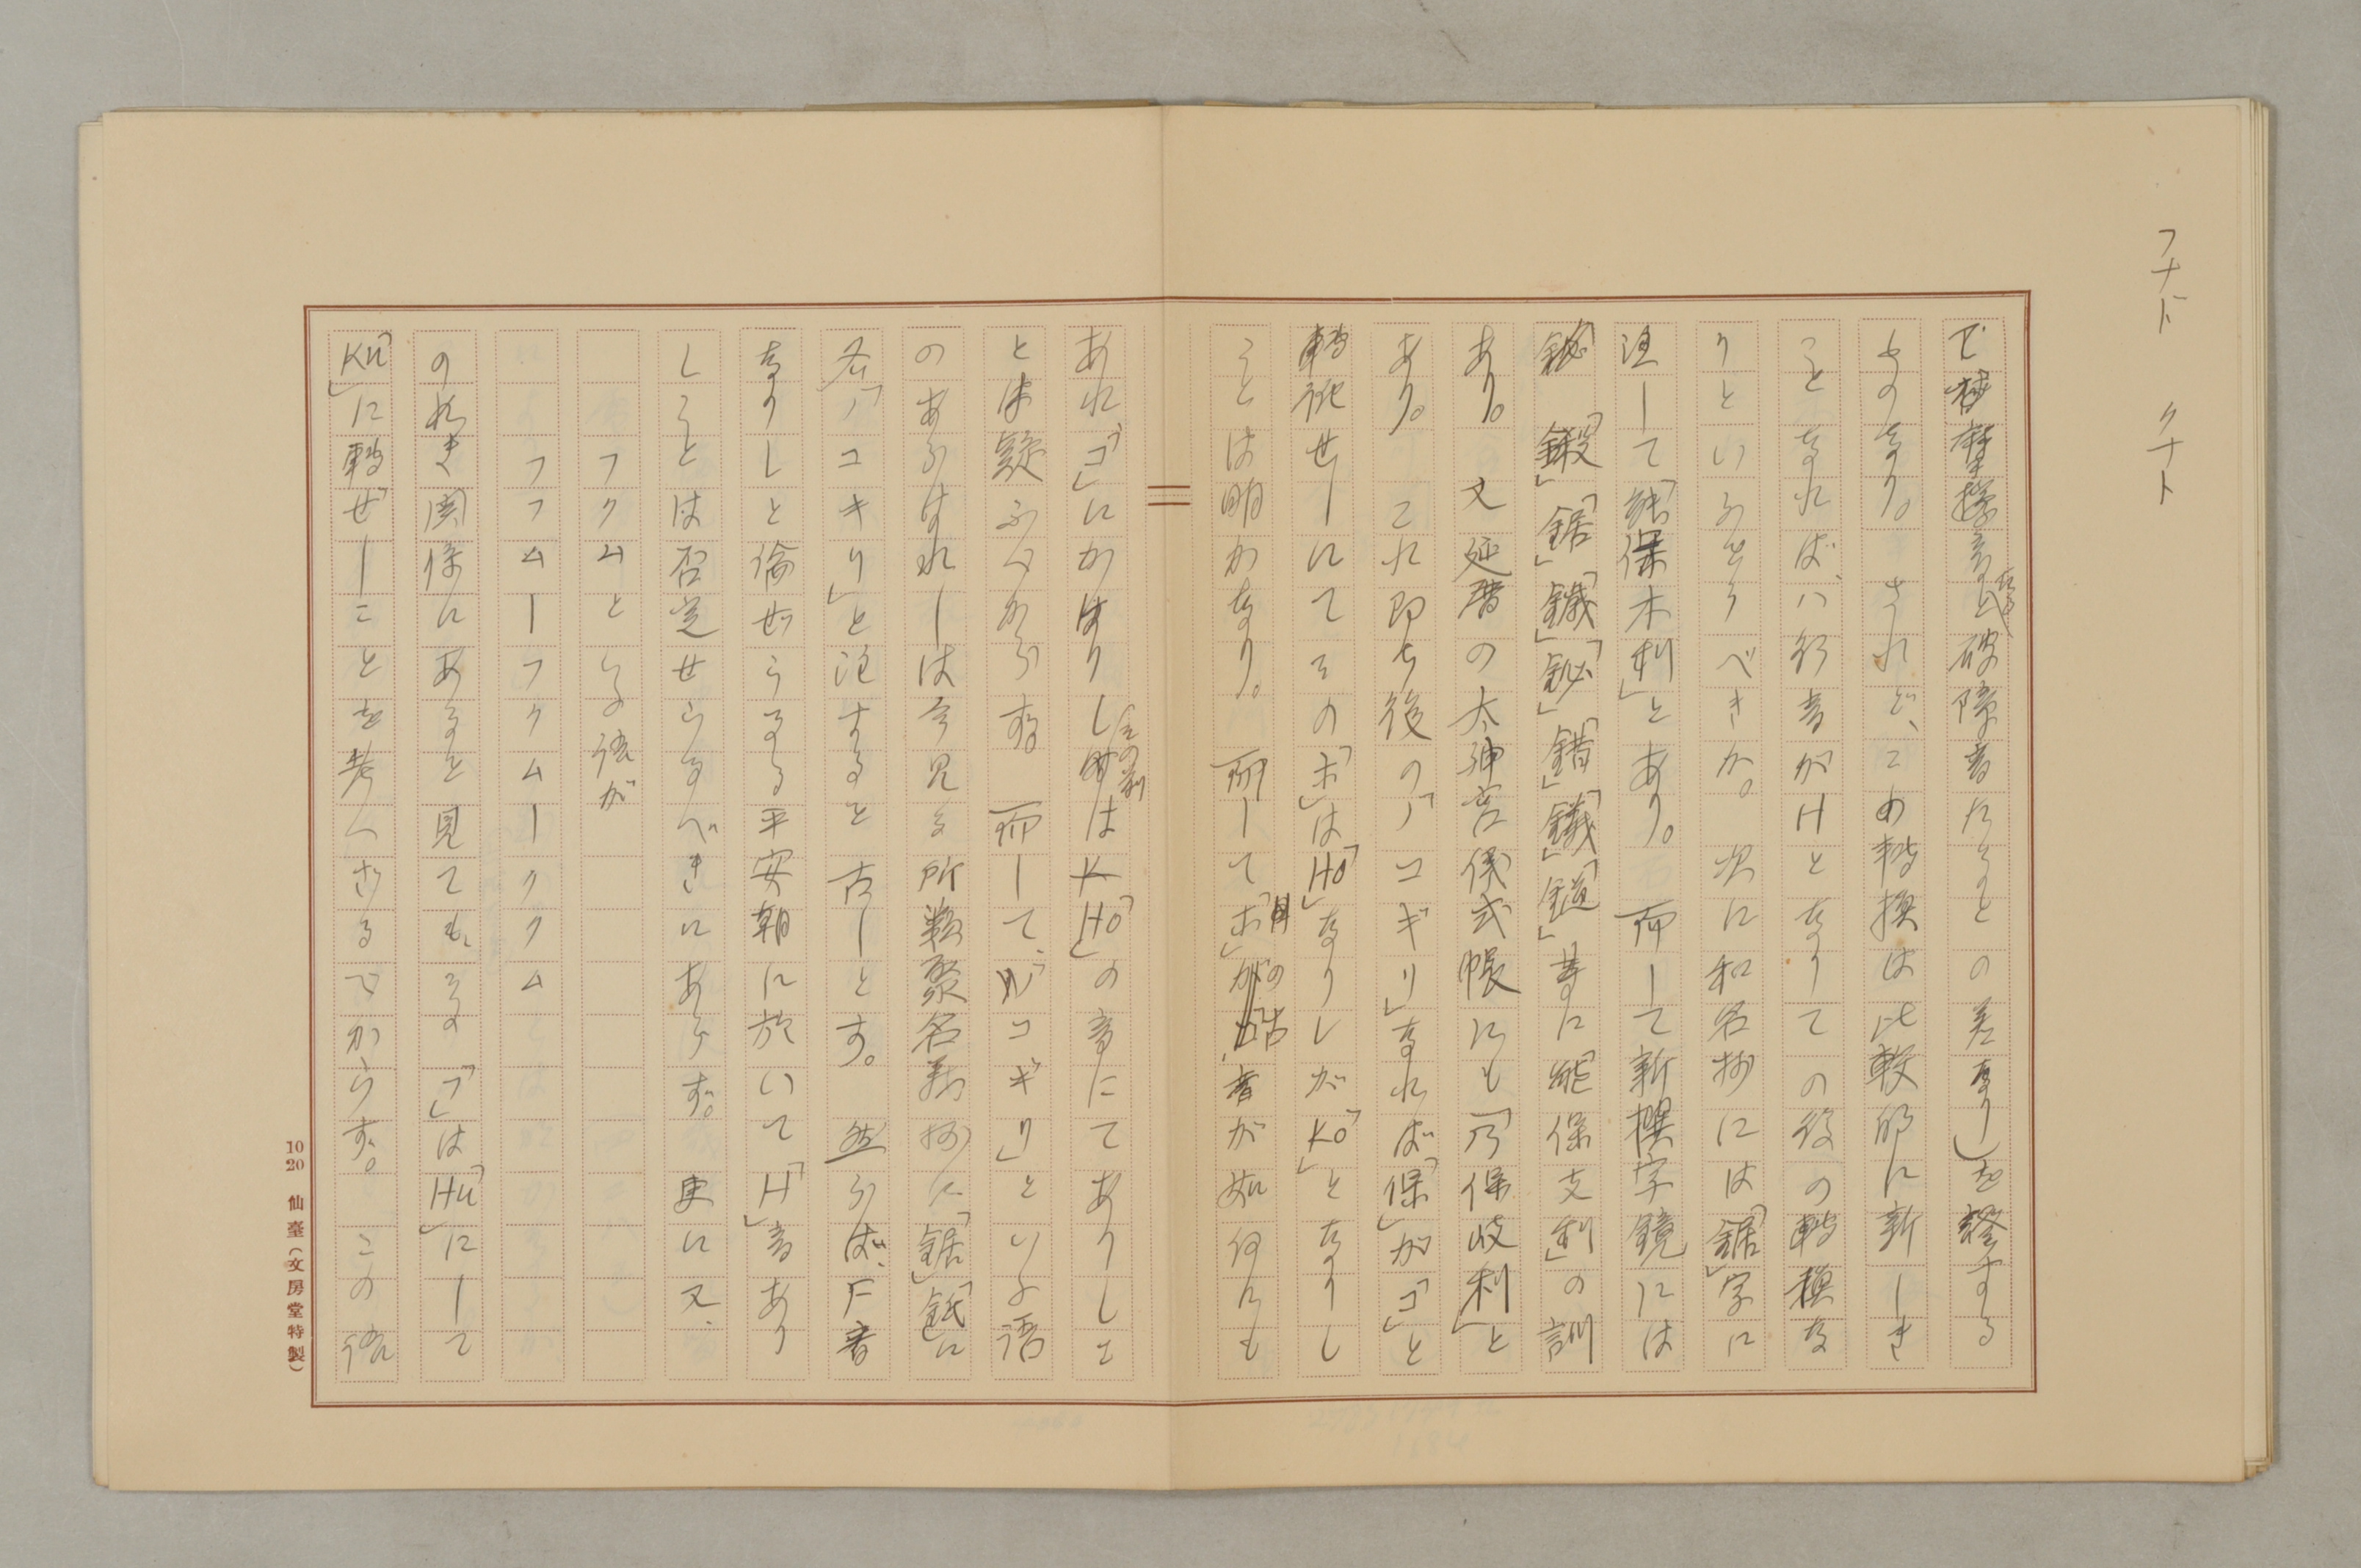 フナド クナト
で摩擦音と破障音たるとの差あり)を證する
ものなり。されど、この轉換は比較的に新しき
ことなれば、ハ行音がHとなりての後の轉換な
りといふをうべきか。次に和名抄には「鋸」字に
注して「能保木利」とあり。而して新撰字鏡には
「鍛」「鋸」「鐡」「鉍」「錯」「鐡」「鎚」等に「能保支利」の訓
あり。又延暦の太神宮儀式帳にも「乃保岐利」と
あり。これ即ち後の「ノコギリ」なれば「保」が「コ」と
轉訛せしにてその「ホ」は「HO」なりしが「KO」となりし
ことは明かなり。而して「ホ」の古音が如何にも
あれ「コ」にかはりし時は「HO」の音にてありしこ
とは疑ふべからず。而して、「ノコギリ」といふ語
のあらはれしは今見る所類聚名義抄に「鋸」「鉽」に
各「ノコキリ」と注するを古しとす。然らば、F音
なりしと論ぜらるる平安朝に於いて「H」音あり
しことは否定せらるべきにあらず。更に又、
フクムといふ語が
フフムーフクムーククム
の如き関係にあるを見ても、その「フ」は「Hu」にして
「Ku」に轉ぜしことを考へざるべからず。この語
10 20 仙臺(文房堂特製)